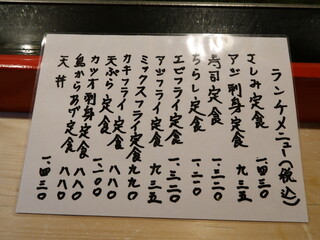 ランチメニュー(税込)
さしみ定食 一、四三〇
アジ刺身定食 九三五
寿司定食 一、三二〇
ちらし定食 一、二一〇
エビフライ定食 一、三二〇
アジフライ定食 九三五
ミックスフライ定食 九九〇
カキフライ定食 一、一〇〇
天ぷら定食 一、二一〇
カツオ刺身定食 八八〇
鳥からあげ定食 八八〇
天丼 一、四三〇